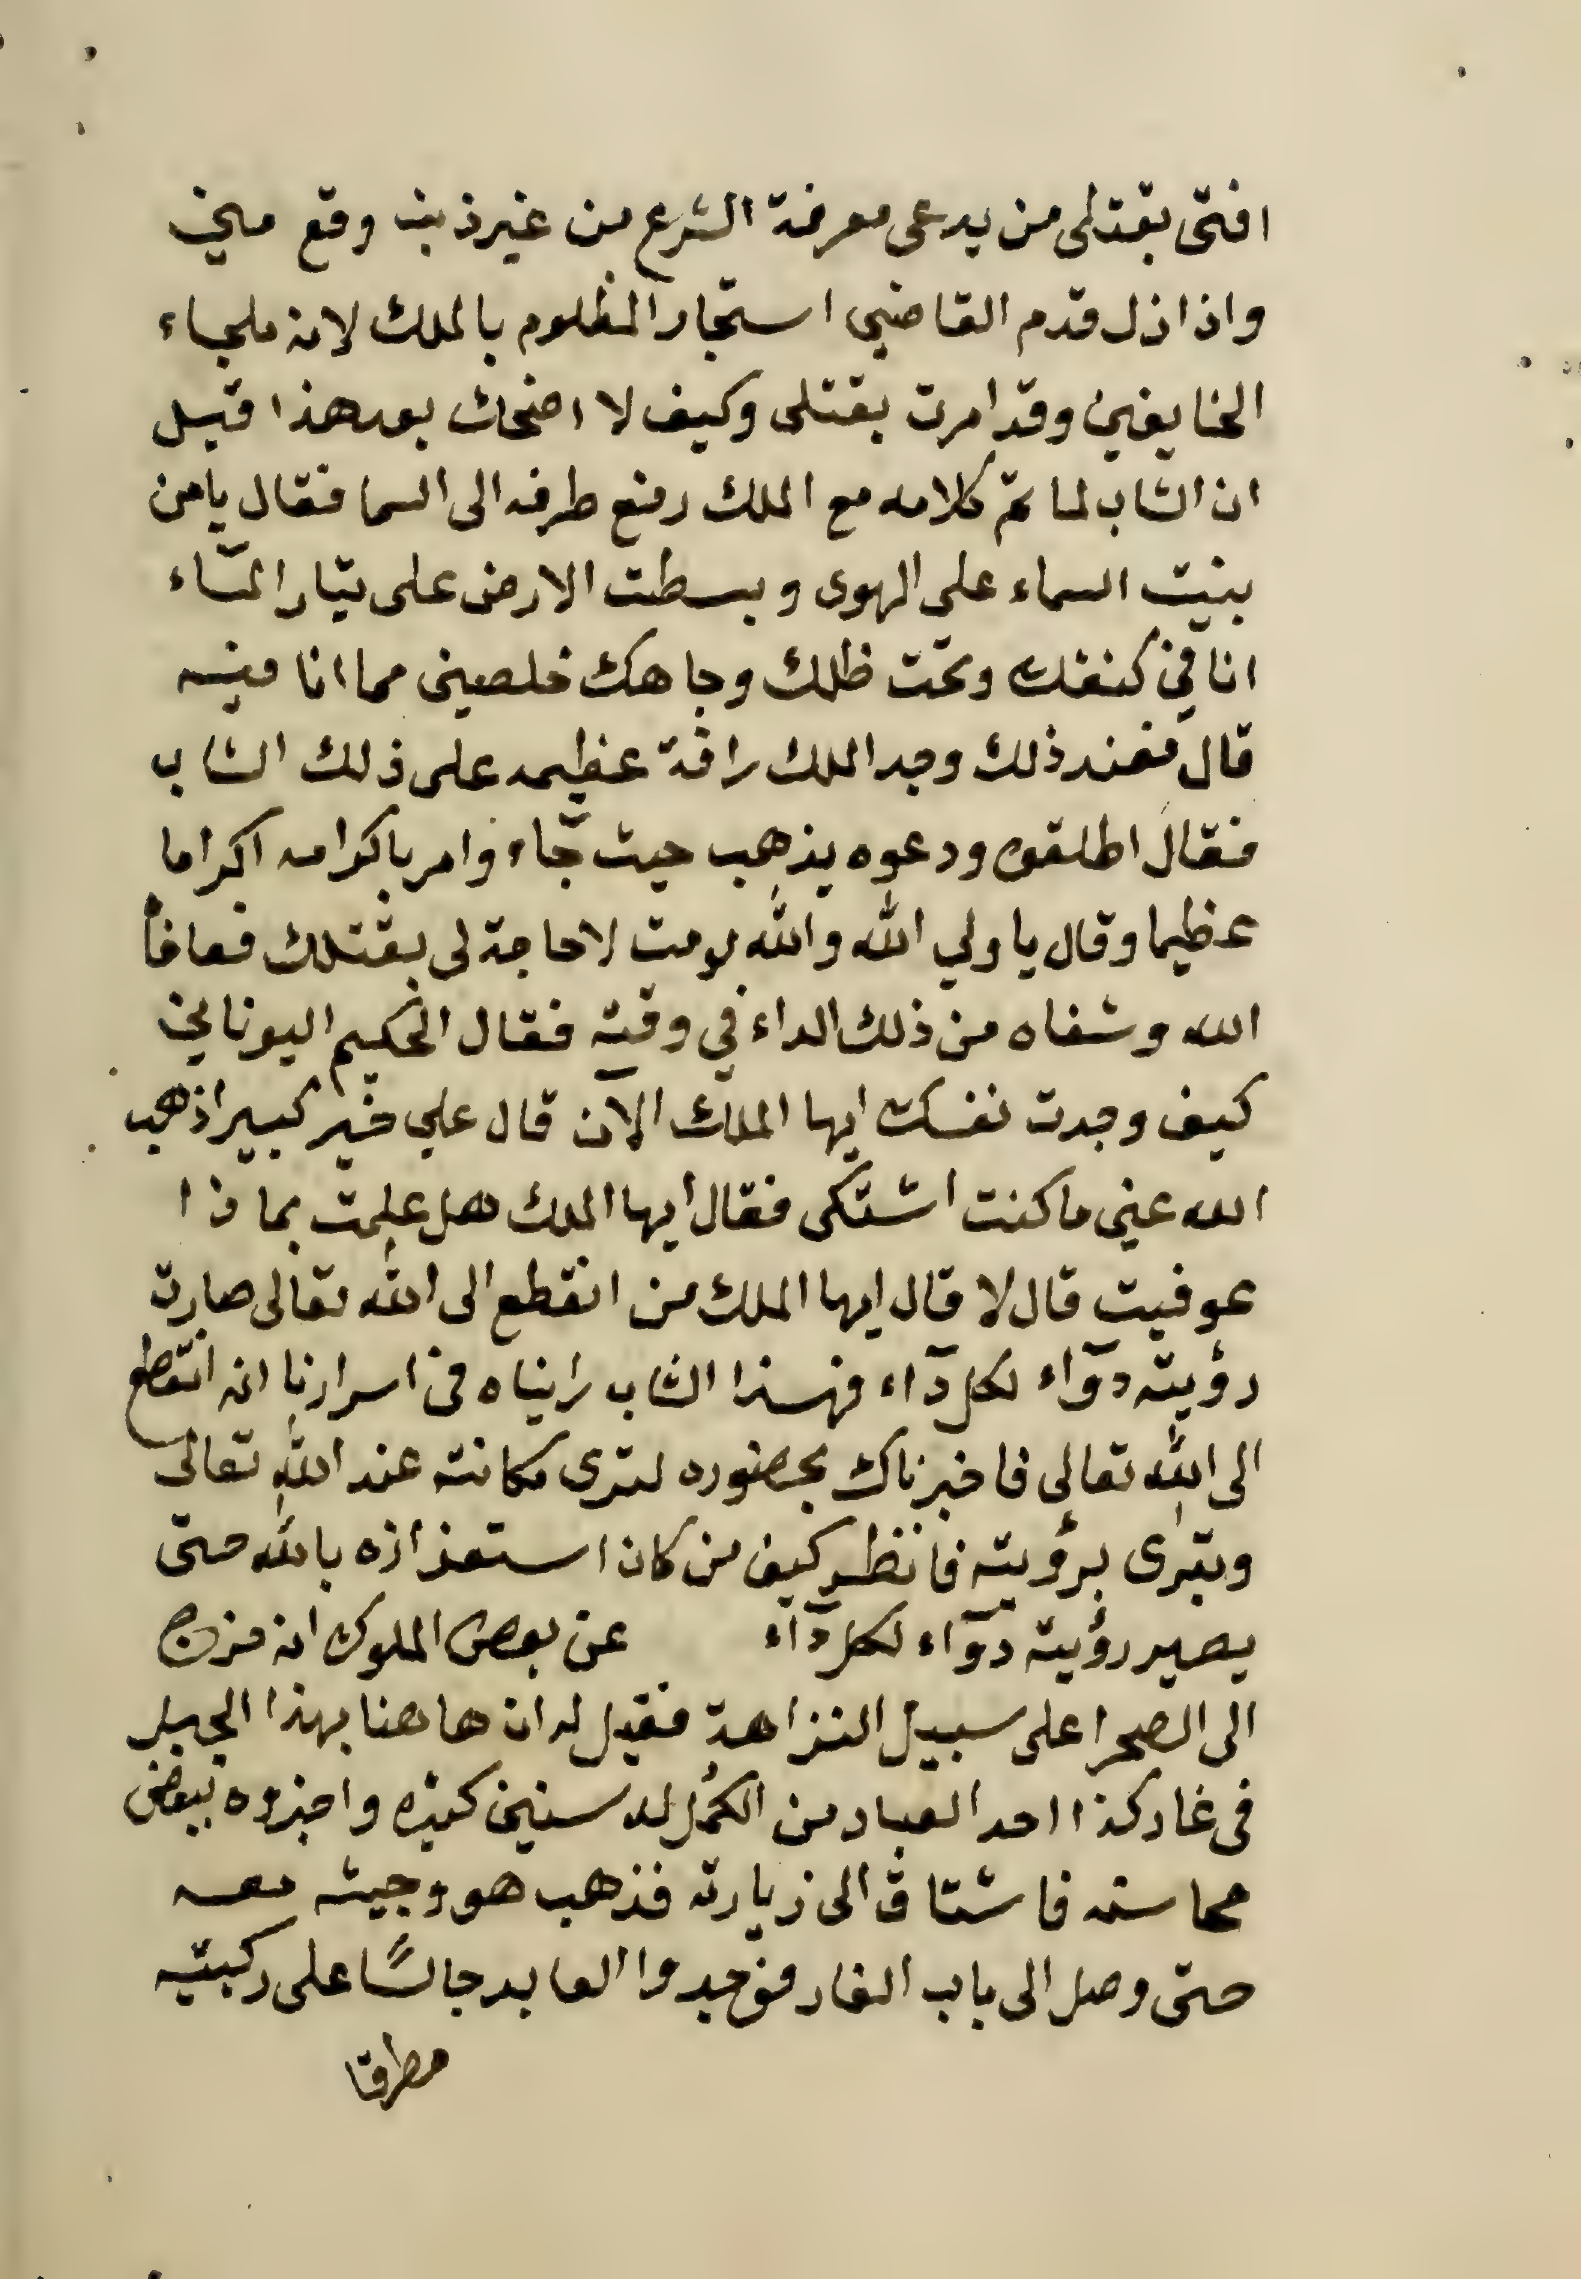 افتى بقتلى من يدعى معرفة الشرع من غير ذنب وقع مني
واذا زل قدم القاضي استجار المظلوم بالملك لانه ملجاء
الخايفين وقد امرت بقتلى وكيف لا اضحك بعد هذا قيل
ان الشاب لما تم كلامه مع الملك رفع طرفه الى السما فقال يا من
بنيت السماء على الهوى وبسطت الارض على تيار الماء
انا في كنفك وتحت ظلك وجاهك خلصيني مما انا فيه
قال فعند ذلك وجد الملك رافة عظيمه على ذلك الشاب
فقال اطلقوه ودعوه يذهب حيث جاء وامر باكرامه اكراما
عظيما وقال يا ولي الله والله لو مت لا حاجة لى بقتلك فعافاه
الله وشفاه من ذلك الداء في وقته فقال الحكيم اليوناني
كيف وجدت نفسك ايها الملك الآن قال علي خير كبير اذهب
الله عني ما كنت اشتكى فقال ايها الملك هل علمت بما ذا
عوفيت قال لا قال ايها الملك من انقطع الى الله تعالى صارت
رؤيته دوآء لكل دآء فهذا الشاب رايناه في اسرارنا انه انقطع
الى الله تعالى فاخبرناك بحضوره لترى مكانته عند الله تعالى
وتبرى برؤيته فانظر كيف من كان استعزازه بالله حتى
يصير رؤيته دوآء لكل دآء عن بعض الملوك انه خرج
الى الصحرا على سبيل النزاهة فقيل له ان هاهنا بهذا الجبل
في غار كذا احد العباد من الكُمل له سنين كثيره واخبروه ببعض
محاسنه فاشتاق الى زيارته فذهب هو وجيشه معه
حتى وصل الى باب الغار فوجدوا العابد جالسًا على ركبتيه
مطرقا